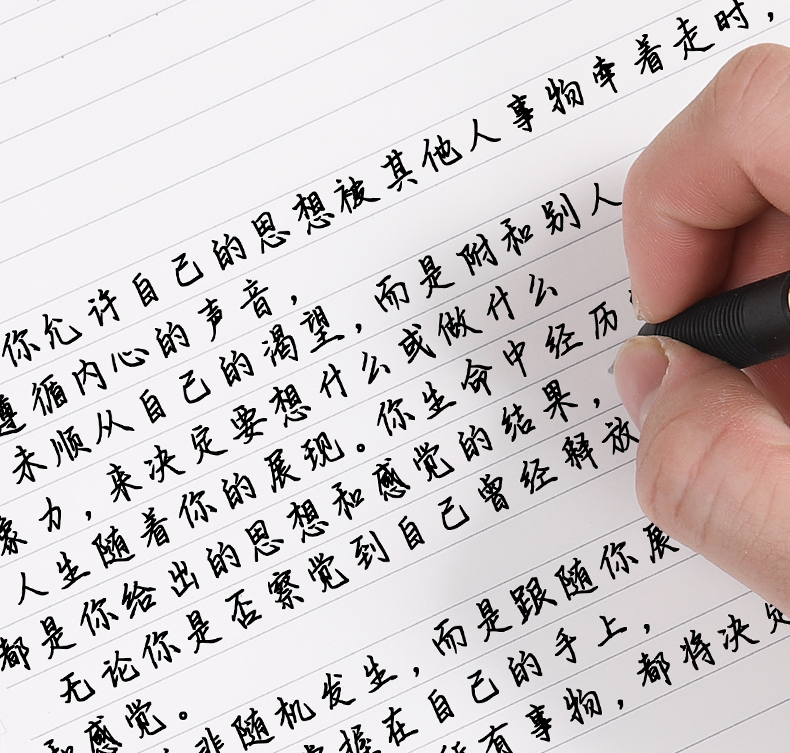 你允许自己的思想被其他人事物牵着走时，
遵循内心的声音，
未顺从自己的渴望，而是附和别人
象力，来决定要想什么或做什么
人生随着你的展现。你生命中经历
都是你给出的思想和感觉的结果，
无论你是否察觉到自己曾经释放
和感觉。
非随机发生，而是跟随你展
掌握在自己的手上，
所有事物，都将决定